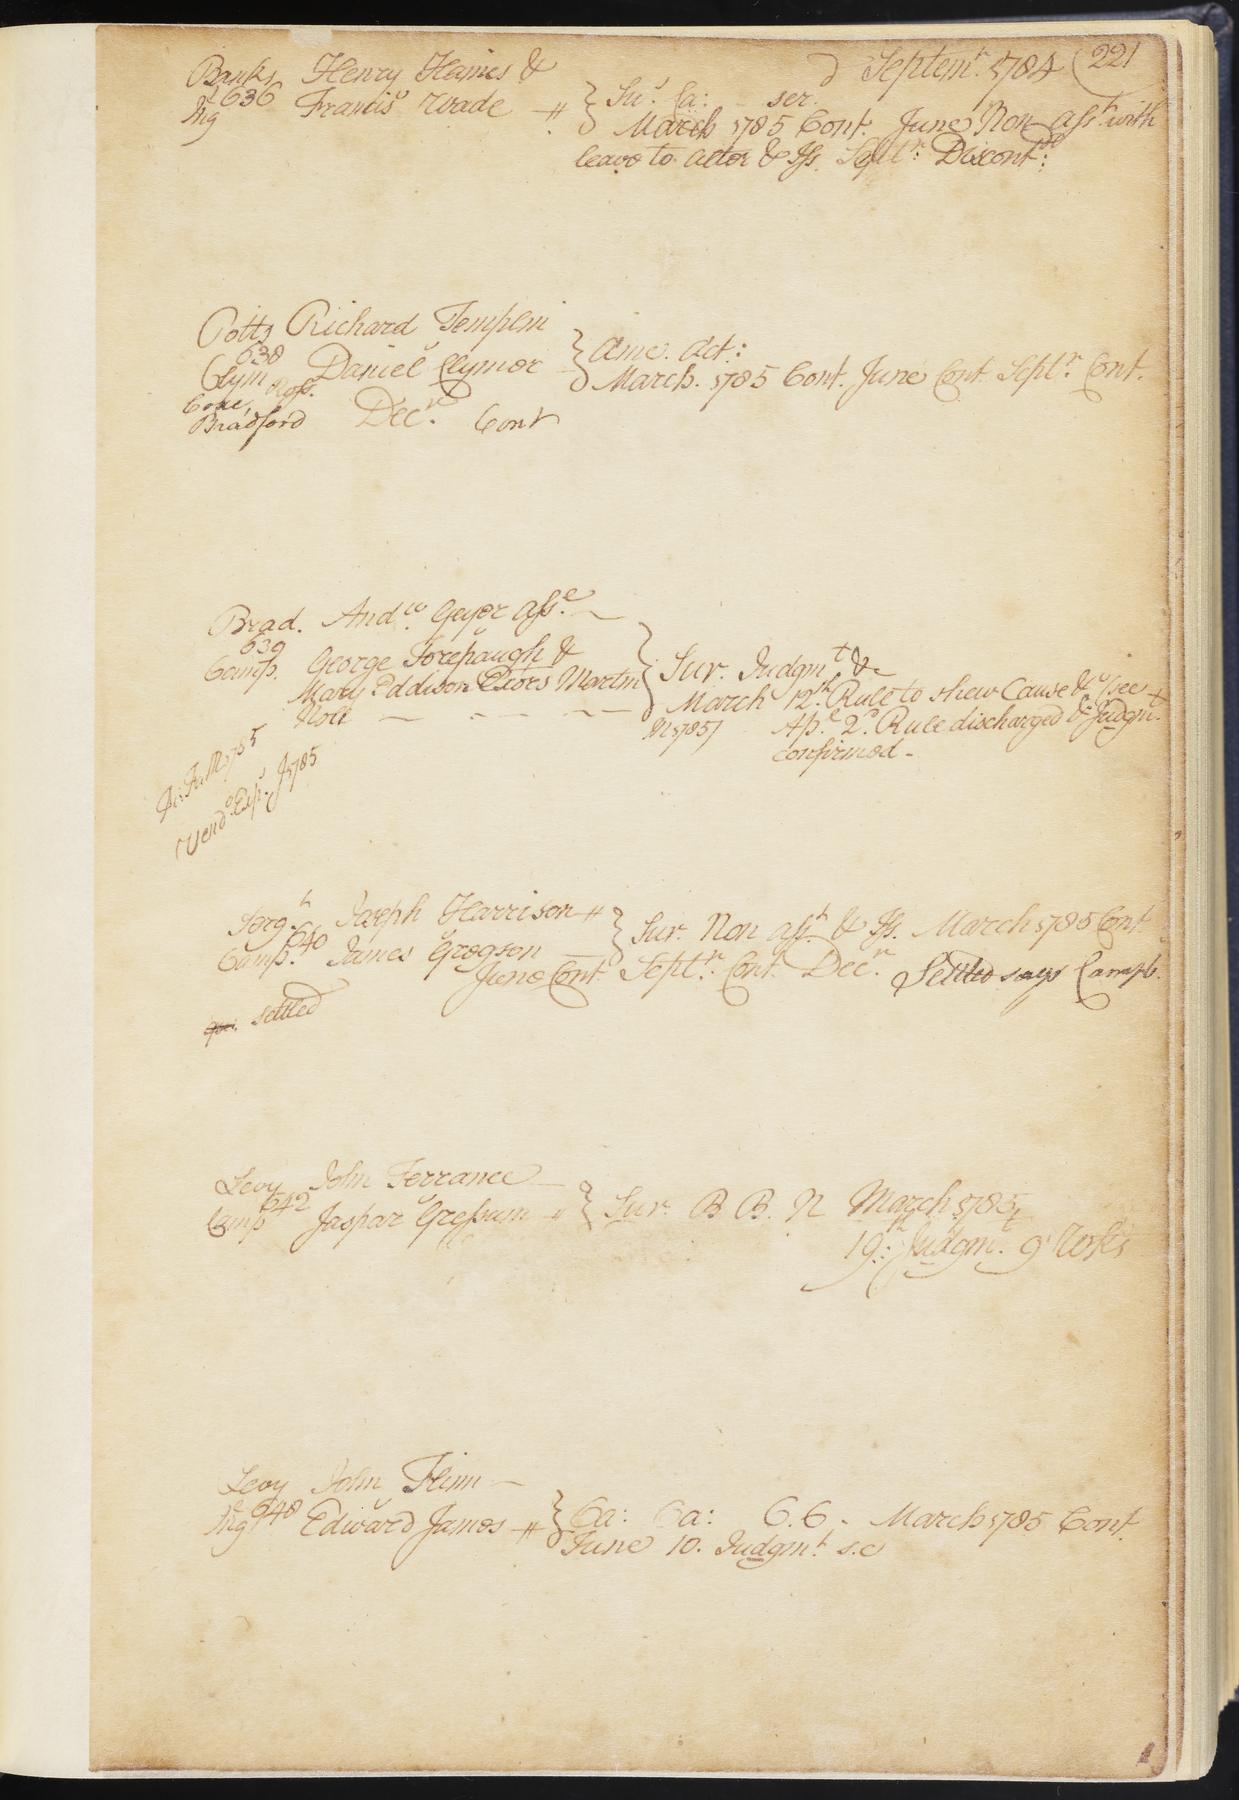 Septem.r 1784 (221
Banks Henry Haines &
636
Ing Francis Wade } Su.r Ca: ser.
March 1785 Cont. June Non ass.t with
leave to alter & Iss. Sept.r: Discont.d:
Potts Richard Templin
638 } Ame. Act.:
Clym Daniel Clymer March. 1785 Cont. June Cont. Sept.r Cont.
Coxe, Ross.
Bradford Dec.r Cont
Brad. And.w Geyer Ass.e
639
Camp. George Forepaugh &
Mary Eddison Exors Martin } Sur. Judgm.t &
Nolt March 12.th Rule to shew Cause &c (see
M 1785) Ap.l 2.d Rule discharged & Judgm.t
confirmed
Fi: Fa M 1785
Vend.o Exp.s J 1785
Serg.t Joseph Harrison
640 } Sur. Non ass.t & Iss. March 1785 Cont
Camp. James Grogson
June Cont. Sept.r: Cont. Dec.r Settled says Campb.
settled
Levy John Ferrance
642
Camp Jaspar Gressum } Sur. B B. N March 1785
19: Judgm.t
Levy John Flinn
648
Ing Edward James } Ca: Ca: C.C. March 1785 Cont.
June 10. Judgm.t s.c